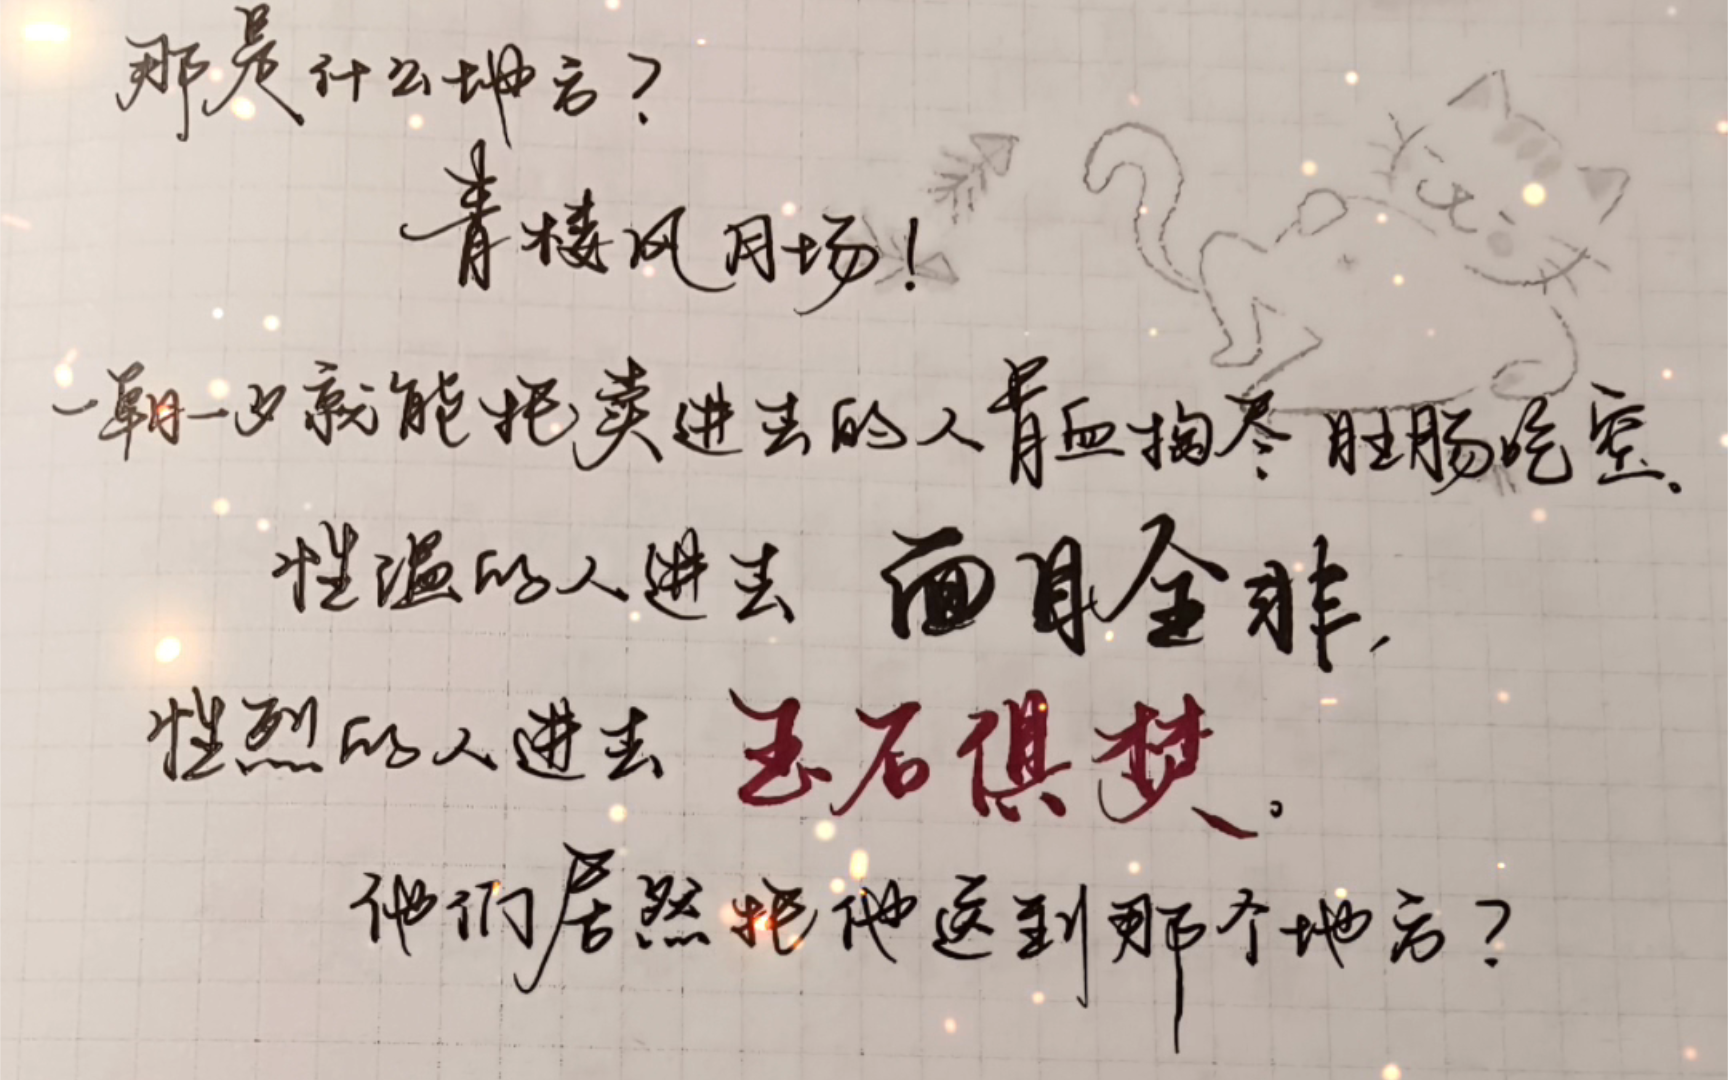 那是什么地方？
青楼风月场！
一朝一夕就能把卖进去的人骨血掏尽肚肠吃空。
性温的人进去面目全非，
性烈的人进去玉石俱焚。
他们居然把他送到那个地方？